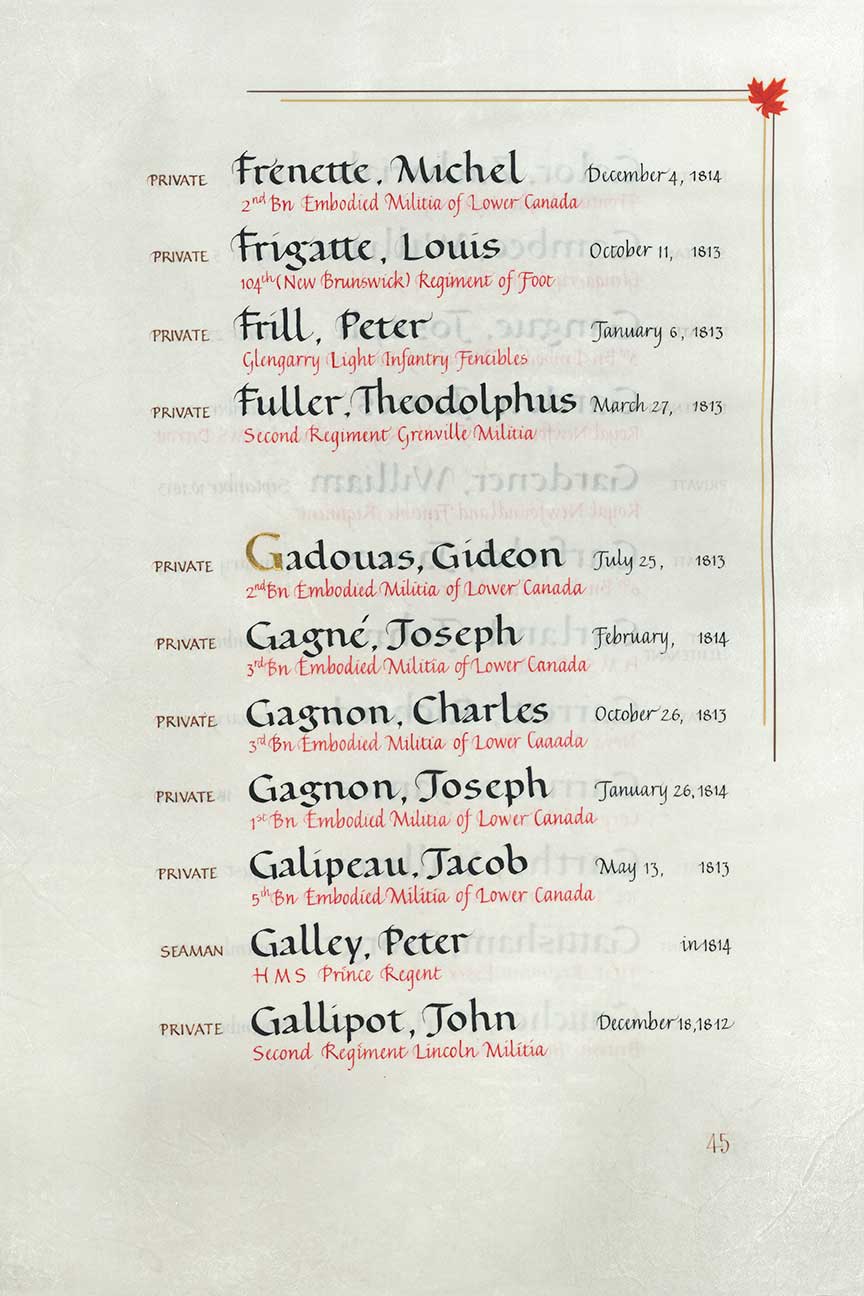 PRIVATE Frenette, Michel December 4, 1814
2nd Bn Embodied Militia of Lower Canada
PRIVATE Frigatte, Louis October 11, 1813
104th (New Brunswick) Regiment of Foot
PRIVATE Frill, Peter January 6, 1813
Glengarry Light Infantry Fencibles
PRIVATE Fuller, Theodolphus March 27, 1813
Second Regiment Grenville Militia
PRIVATE Gadouas, Gideon July 25, 1813
2nd Bn Embodied Militia of Lower Canada
PRIVATE Gagné, Joseph February, 1814
3rd Bn Embodied Militia of Lower Canada
PRIVATE Gagnon, Charles October 26, 1813
3rd Bn Embodied Militia of Lower Canada
PRIVATE Gagnon, Joseph January 26, 1814
1st Bn Embodied Militia of Lower Canada
PRIVATE Galipeau, Jacob May 13, 1813
5th Bn Embodied Militia of Lower Canada
SEAMAN Galley, Peter in 1814
H M S Prince Regent
PRIVATE Gallipot, John December 18, 1812
Second Regiment Lincoln Militia
45